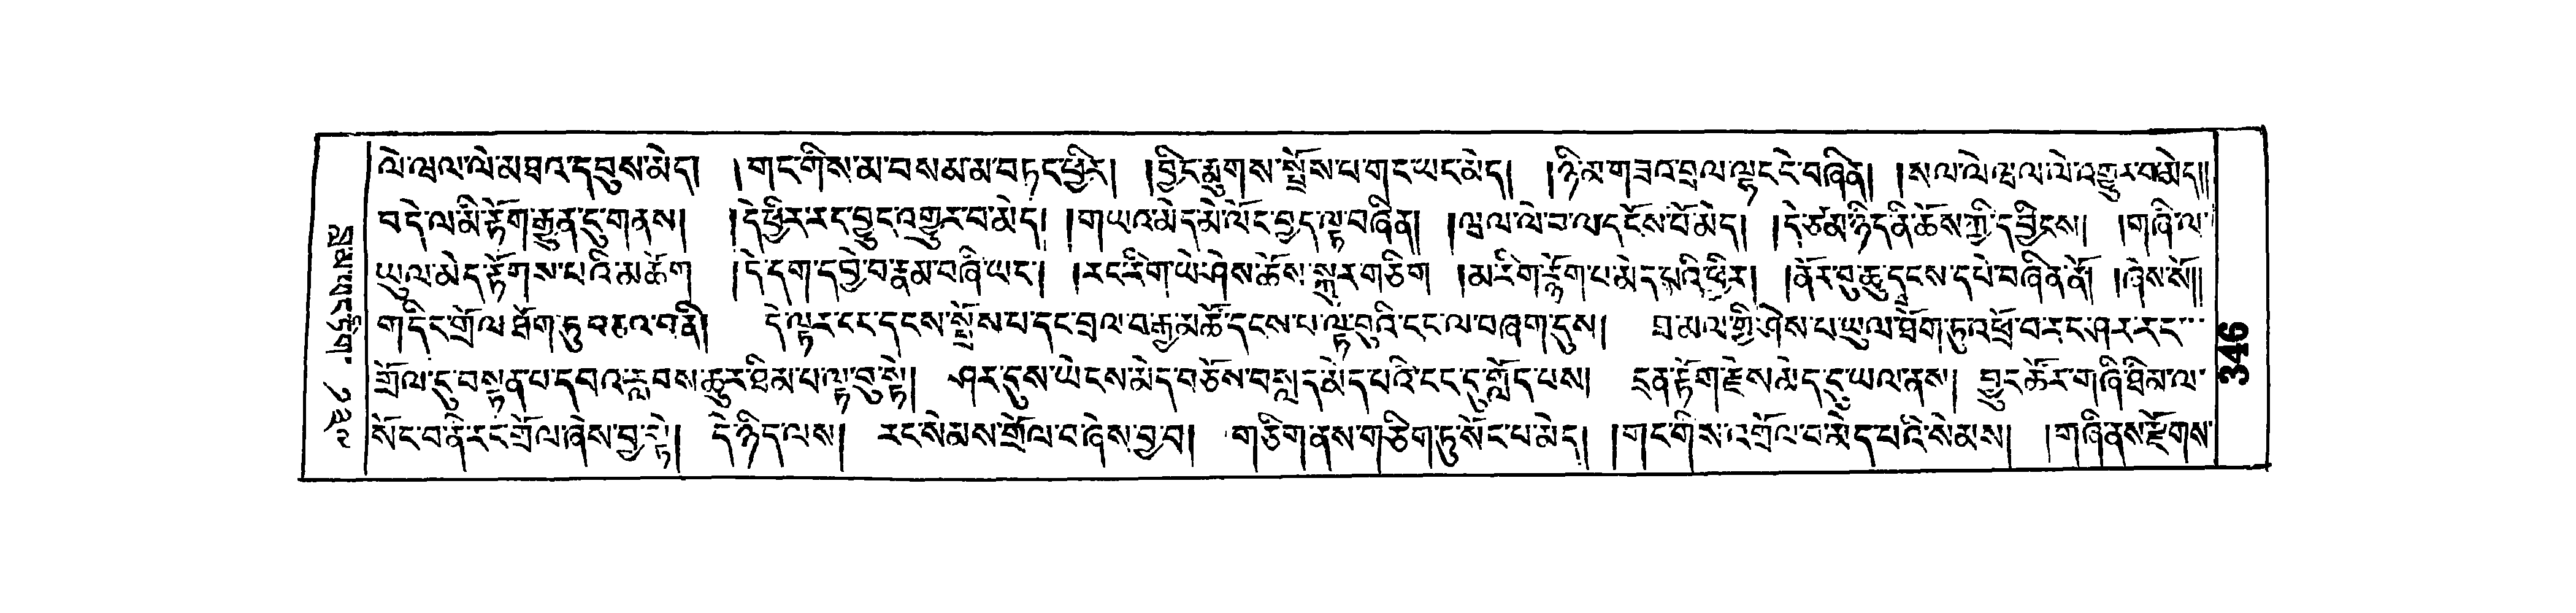 ལེ་ཝལ་ལེ་མཐའ་དབུས་མེད། །གང་གིས་མ་བསམ་མ་བཏང་ཕྱིར། །བྱིང་རྨུགས་སྤྲོས་པ་གང་ཡང་མེད། །ཉི་མ་གཟའ་བྲལ་ལྷང་ངེ་བཞིན། །སལ་ལེ་ཝལ་ལེ་འགྱུར་བ་མེད།།
བདེ་ལ་མི་རྟོག་རྒྱུན་དུ་གནས། །དེ་ཕྱིར་རང་བྱུང་འགྱུར་བ་མེད། །གཡའ་མེད་མེ་ལོང་བྱད་ལྟ་བཞིན། །ཝལ་ལེ་བ་ལ་དངོས་པོ་མེད། །དེ་ཙམ་ཉིད་ནི་ཆོས་ཀྱི་དབྱིངས། །གཞི་ལ་
ཡུལ་མེད་རྟོགས་པའི་མཆོག །དེ་དག་དབྱེ་བ་རྣམ་བཞི་ཡང་། །རང་རིག་ཡེ་ཤེས་ཆོས་སྐུར་གཅིག །མ་རིག་རྟོག་པ་མེད་པའི་ཕྱིར། །ནོར་བུ་ཆུ་དྭངས་དཔེ་བཞིན་ནོ། །ཞེས་སོ།།
གདིང་གྲོལ་ཐོག་ཏུ་བཅའ་བ་ནི། དེ་ལྟར་ངང་དྭངས་སྤྲོས་པ་དང་བྲལ་བ་རྒྱ་མཚོ་དྭངས་པ་ལྟ་བུའི་ངང་ལ་བཞག་དུས། ཐ་མལ་གྱི་ཤེས་པ་ཡུལ་ཐོག་ཏུ་འཕྲོ་བ་རང་ཤར་རང་
གྲོལ་དུ་བསྟན་པ་དབའ་རླབས་ཆུར་ཐིམ་པ་ལྟ་བུ་སྟེ། ཤར་དུས་ཡེངས་མེད་བཅོས་བསླད་མེད་པའི་ངང་དུ་གློད་པས། དྲན་རྟོག་རྗེས་མེད་དུ་ཡལ་ནས། བྱུང་ཚོར་གཞི་ཐིམ་ལ་
སོང་བ་ནི་རང་གྲོལ་ཞེས་བྱ་སྟེ། དེ་ཉིད་ལས། རང་སེམས་གྲོལ་བ་ཞེས་བྱ་བ། གཅིག་ནས་གཅིག་ཏུ་སོང་བ་མེད། །གང་གིས་འགྲོལ་བ་མེད་པའི་སེམས། །གཞི་ནས་རྫོགས་
346